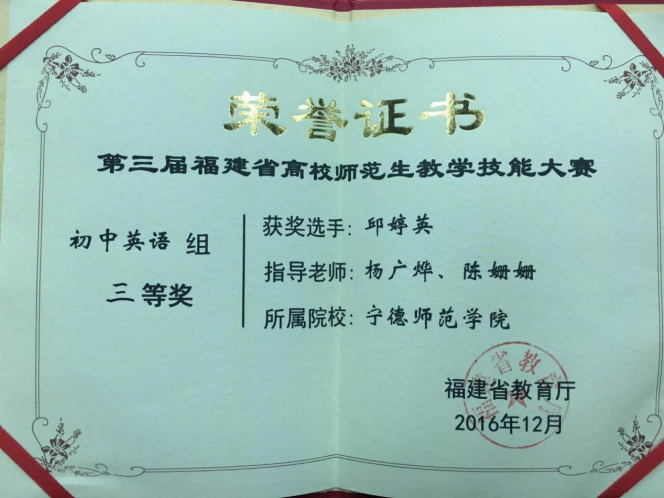 荣誉证书
第三届福建省高校师范生教学技能大赛
初中英语 组
三等奖
获奖选手：邱婷英
指导老师：杨广烨、陈姗姗
所属院校：宁德师范学院
福建省教育厅
福建省教育厅
2016年12月